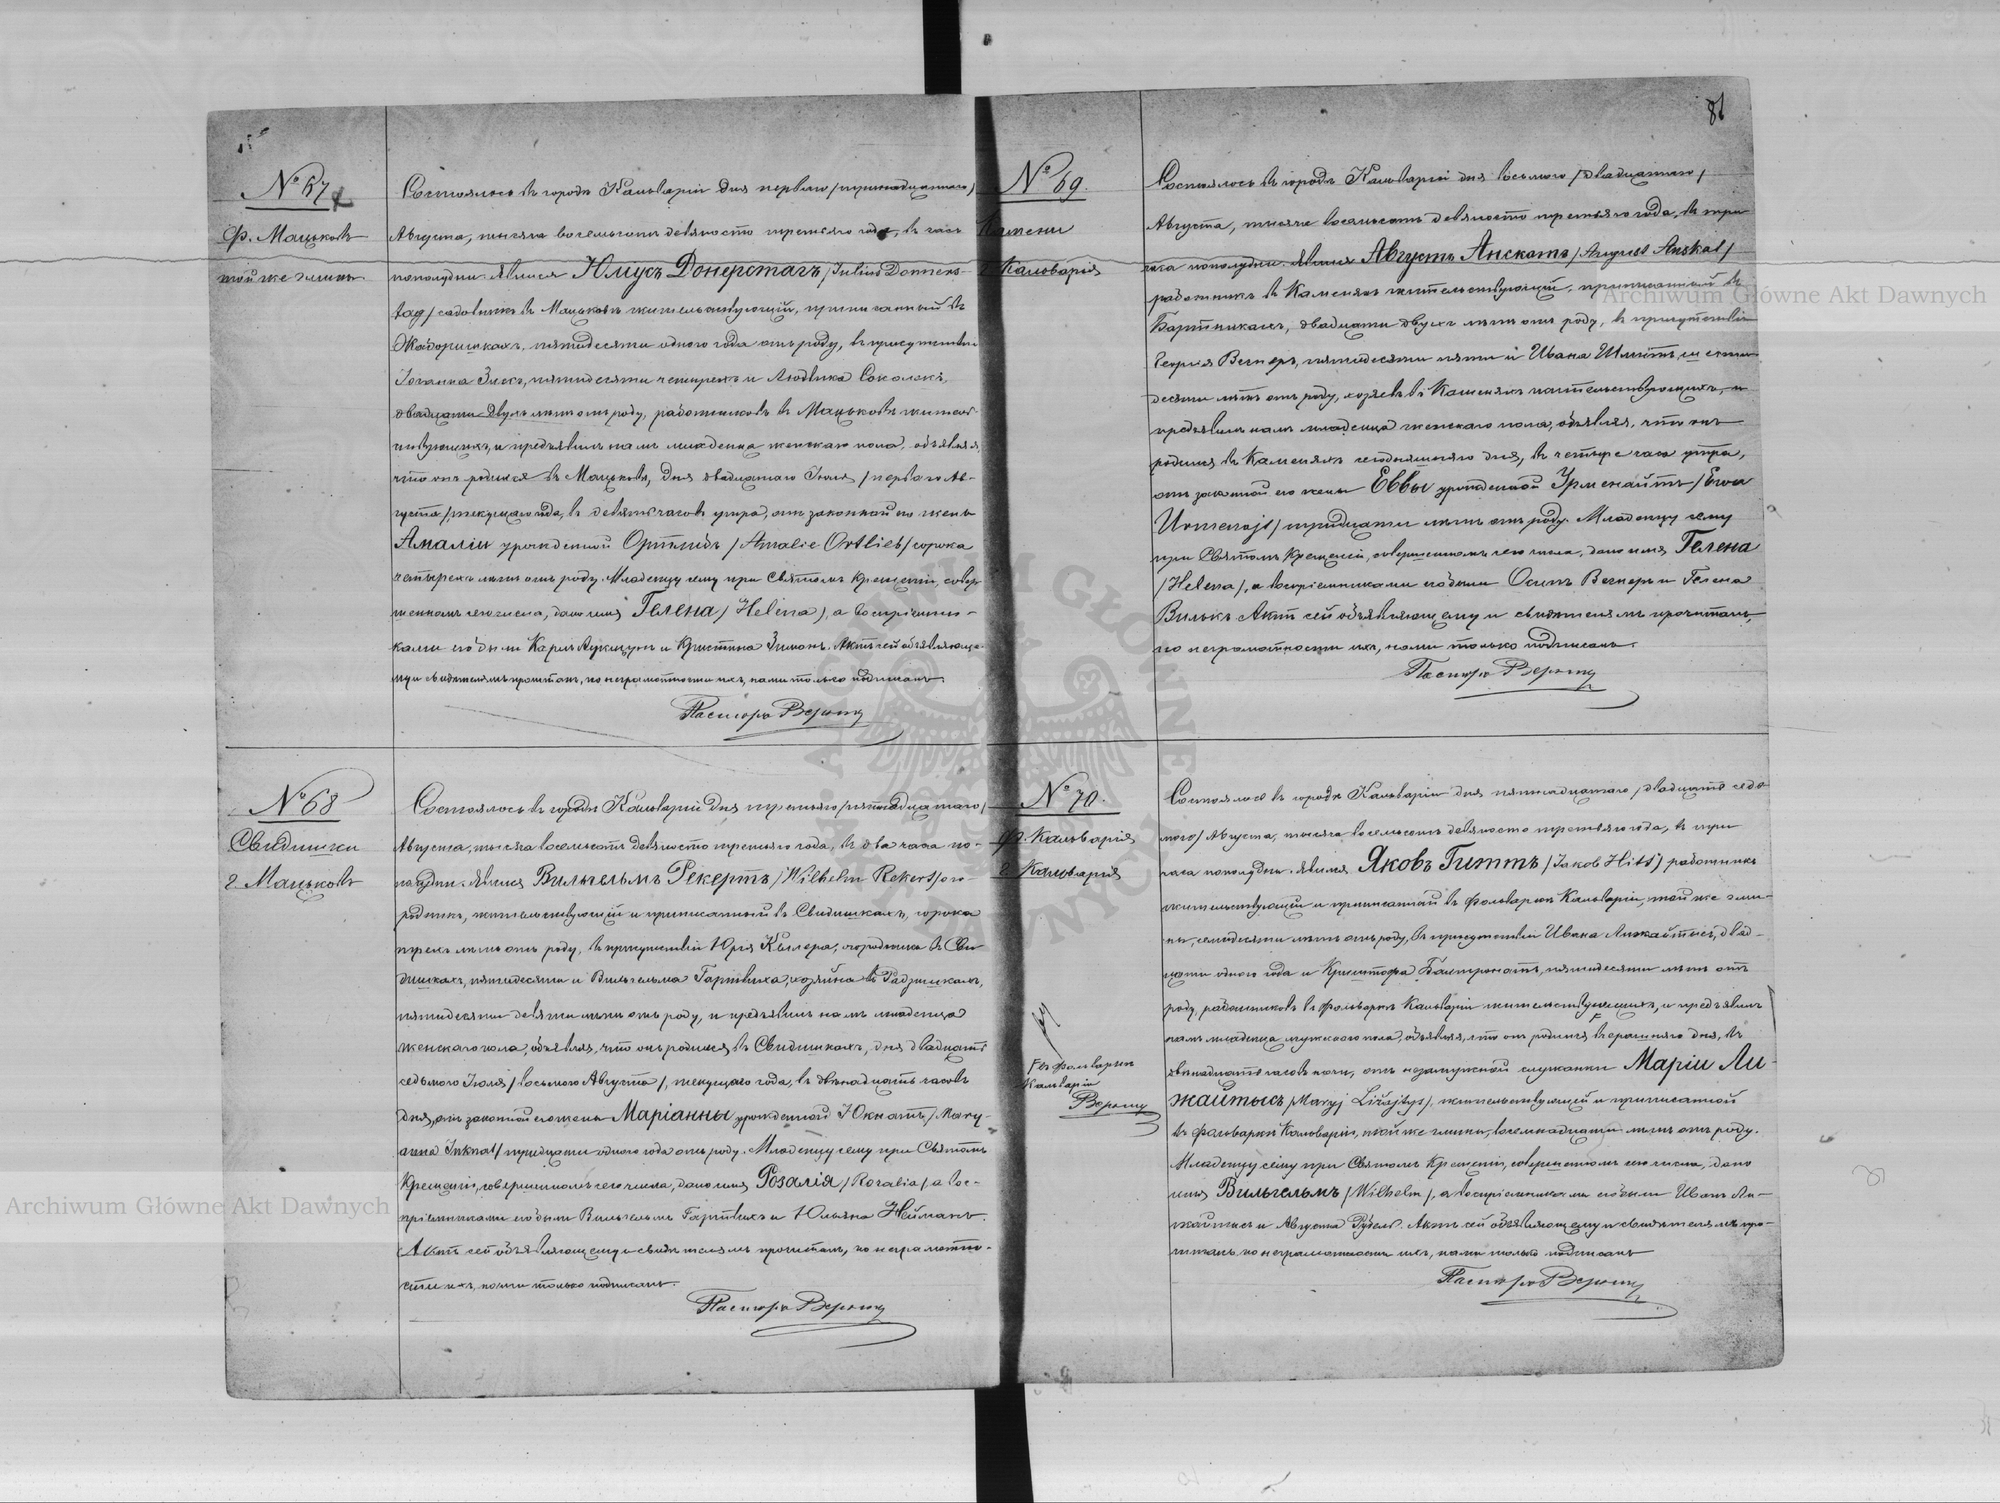 № 67
Ф. Мацьковъ
той же гмины
Состоялось въ городѣ Кальваріи дня перваго /тринадцатаго/
Августа, тысяча восемьсотъ девяносто третьяго года, въ часъ
пополудни. Явился Юліусъ Донерстагъ /Julius Donners-
tag/ садовникъ въ Мацьковѣ жительствующій, приписанный въ
пятидесяти одного года отъ роду, въ присутствіи
Іоганна пятидесяти четырехъ и Людвика Соколекъ,
двадцати двухъ лѣтъ отъ роду, работниковъ въ Мацьковѣ житель-
ствующихъ, и предъявилъ намъ младенца женскаго пола, объявляя,
что онъ родился въ Мацьковѣ, дня двадцатаго Іюля /перваго Ав-
густа/ текущаго года, въ девять часовъ утра, отъ законной его жены
Амаліи урожденной Ортлибъ /Amalie Ortlieb/ сорока
четырехъ лѣтъ отъ роду. Младенцу сему при Святомъ Крещеніи, совер-
шенномъ сего числа, дано имя Гелена /Helena/, а воспріемни-
ками его были Карлъ и Кристина Симонъ. Актъ сей объявляюще-
му и свидѣтелямъ прочитанъ, по неграмотности ихъ, нами только подписанъ.
Пасторъ
№ 68
Свидишки
г. Мацьковъ
Состоялось въ городѣ Кальваріи дня третьяго /пятнадцатаго/
Августа, тысяча восемьсотъ девяносто третьяго года, въ два часа по-
полудни. Явился Вильгельмъ Рекертъ /Wilhelm Rekert/ ого-
родникъ, жительствующій и приписанный въ Свидишкахъ, сорока
трехъ лѣтъ отъ роду, въ присутствіи Юрія Келлера, огородника въ Сви-
дишкахъ, пятидесяти и Вильгельма Гартвиха, хозяина въ Гадзишкахъ,
пятидесяти девяти лѣтъ отъ роду, и предъявилъ намъ младенца
женскаго пола, объявляя, что онъ родился въ Свидишкахъ, дня двадцать
седьмого Іюля /восьмого Августа/, текущаго года, въ двѣнадцать часовъ
дня, отъ законной его жены Маріанны урожденной Юкнатъ /Mary-
anna Juknat/ тридцати одного года отъ роду. Младенцу сему при Святомъ
Крещеніи, совершенномъ сего числа, дано имя Розалія /Rozalia/, а вос-
пріемниками его были Вильгельмъ Гартвихъ и Юльяна Нейманъ.
Актъ сей объявляющему и свидѣтелямъ прочитанъ, по неграмотно-
сти ихъ, нами только подписанъ.
Пасторъ
81
№ 69.
Камени
г. Кальварія
Состоялось въ городѣ Кальваріи дня восьмого /двадцатаго/
Августа, тысяча восемьсотъ девяносто третьяго года, въ три
часа пополудни. Явился Августъ Анскатъ /August Anskat/
работникъ въ Каменяхъ жительствующій, приписанный въ
Бартникахъ, двадцати двухъ лѣтъ отъ роду, въ присутствіи
Георгія Вегнеръ, пятидесяти пяти и Ивана Шмитъ, шести-
десяти лѣтъ отъ роду, хозяевъ въ Каменяхъ жительствующихъ, и
предъявилъ намъ младенца женскаго пола, объявляя, что онъ
родился въ Каменяхъ сегодняшняго дня, въ четыре часа утра,
отъ законной его жены Еввы урожденной Урменайтъ /Ewa
Urmenajt/ тридцати лѣтъ отъ роду. Младенцу сему
при Святомъ Крещеніи, совершенномъ сего числа, дано имя Гелена
/Helena/, а воспріемниками его были Осипъ Вегнеръ и Гелена
Вилькъ. Актъ сей объявляющему и свидѣтелямъ прочитанъ,
по неграмотности ихъ, нами только подписанъ.
Пасторъ
№ 70.
ф. Кальварія
г. Кальварія
въ фольваркѣ
Кальваріи
Состоялось въ городѣ Кальваріи дня пятнадцатаго /двадцать седь-
мого/ Августа, тысяча восемьсотъ девяносто третьяго года, въ три
часа пополудни. Явился Яковъ Гиттъ /Jakob Hitt/ работникъ
жительствующій и приписанный въ фольваркѣ Кальваріи, той же гми-
ны, семидесяти лѣтъ отъ роду, въ присутствіи Ивана Лижайтысъ, двад-
цати одного года и Криштофа пятидесяти лѣтъ отъ
роду, работниковъ въ фольваркѣ Кальваріи жительствующихъ, и предъявилъ
намъ младенца мужескаго пола, объявляя, что онъ родился вчерашняго дня, въ
двѣнадцать часовъ ночи, отъ незамужной служанки Маріи Ли-
жайтысъ /Maryj Liżajtys/, жительствующей и приписанной
въ фольваркѣ Кальваріи, той же гмины, восемнадцати лѣтъ отъ роду.
Младенцу сему при Святомъ Крещеніи, совершенномъ сего числа, дано
имя Вильгельмъ /Wilhelm/, а воспріемниками его были Иванъ Ли-
жайтысъ и Августа Актъ сей объявляющему и свидѣтелямъ про-
читанъ, по неграмотности ихъ, нами только подписанъ
Пасторъ
Archiwum Główne Akt Dawnych
Archiwum Główne Akt Dawnych